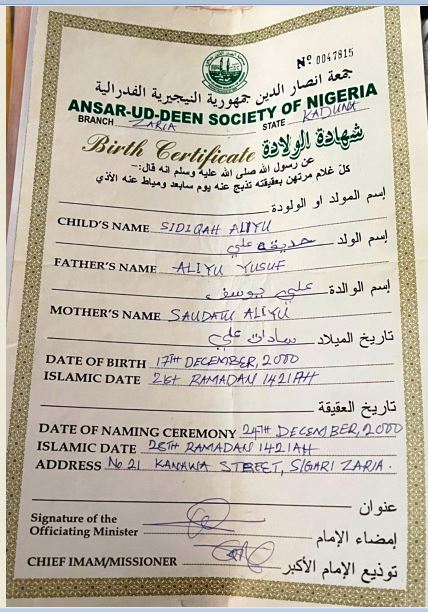 Nº 0047815
جمعة انصار الدين جمهورية النيجيرية الفدرالية
ANSAR-UD-DEEN SOCIETY OF NIGERIA
BRANCH ZARIA STATE KADUNA
Birth Certificate شهادة الولادة
عن رسول الله صلى الله عليه وسلم انه قال:-
كل غلام مرتهن بعقيقته تذبح عنه يوم سابعه ومياط عنه الأذي
إسم المولد او الولودة
CHILD'S NAME SIDIQAH ALIYU
إسم الولد علي
FATHER'S NAME ALIYU YUSUF
إسم الوالدة علي يوسف
MOTHER'S NAME SAUDATU ALIYU
تاريخ الميلاد سادات علي
DATE OF BIRTH 17TH DECEMBER, 2000
ISLAMIC DATE 21ST RAMADAN 1421AH
تاريخ العقيقة
DATE OF NAMING CEREMONY 24TH DECEMBER, 2000
ISLAMIC DATE 28TH RAMADAN 1421AH
ADDRESS No 21 KANAWA STREET, SIGARI ZARIA.
عنوان
Signature of the
Officiating Minister إمضاء الإمام
CHIEF IMAM/MISSIONER توذيع الإمام الأكبر